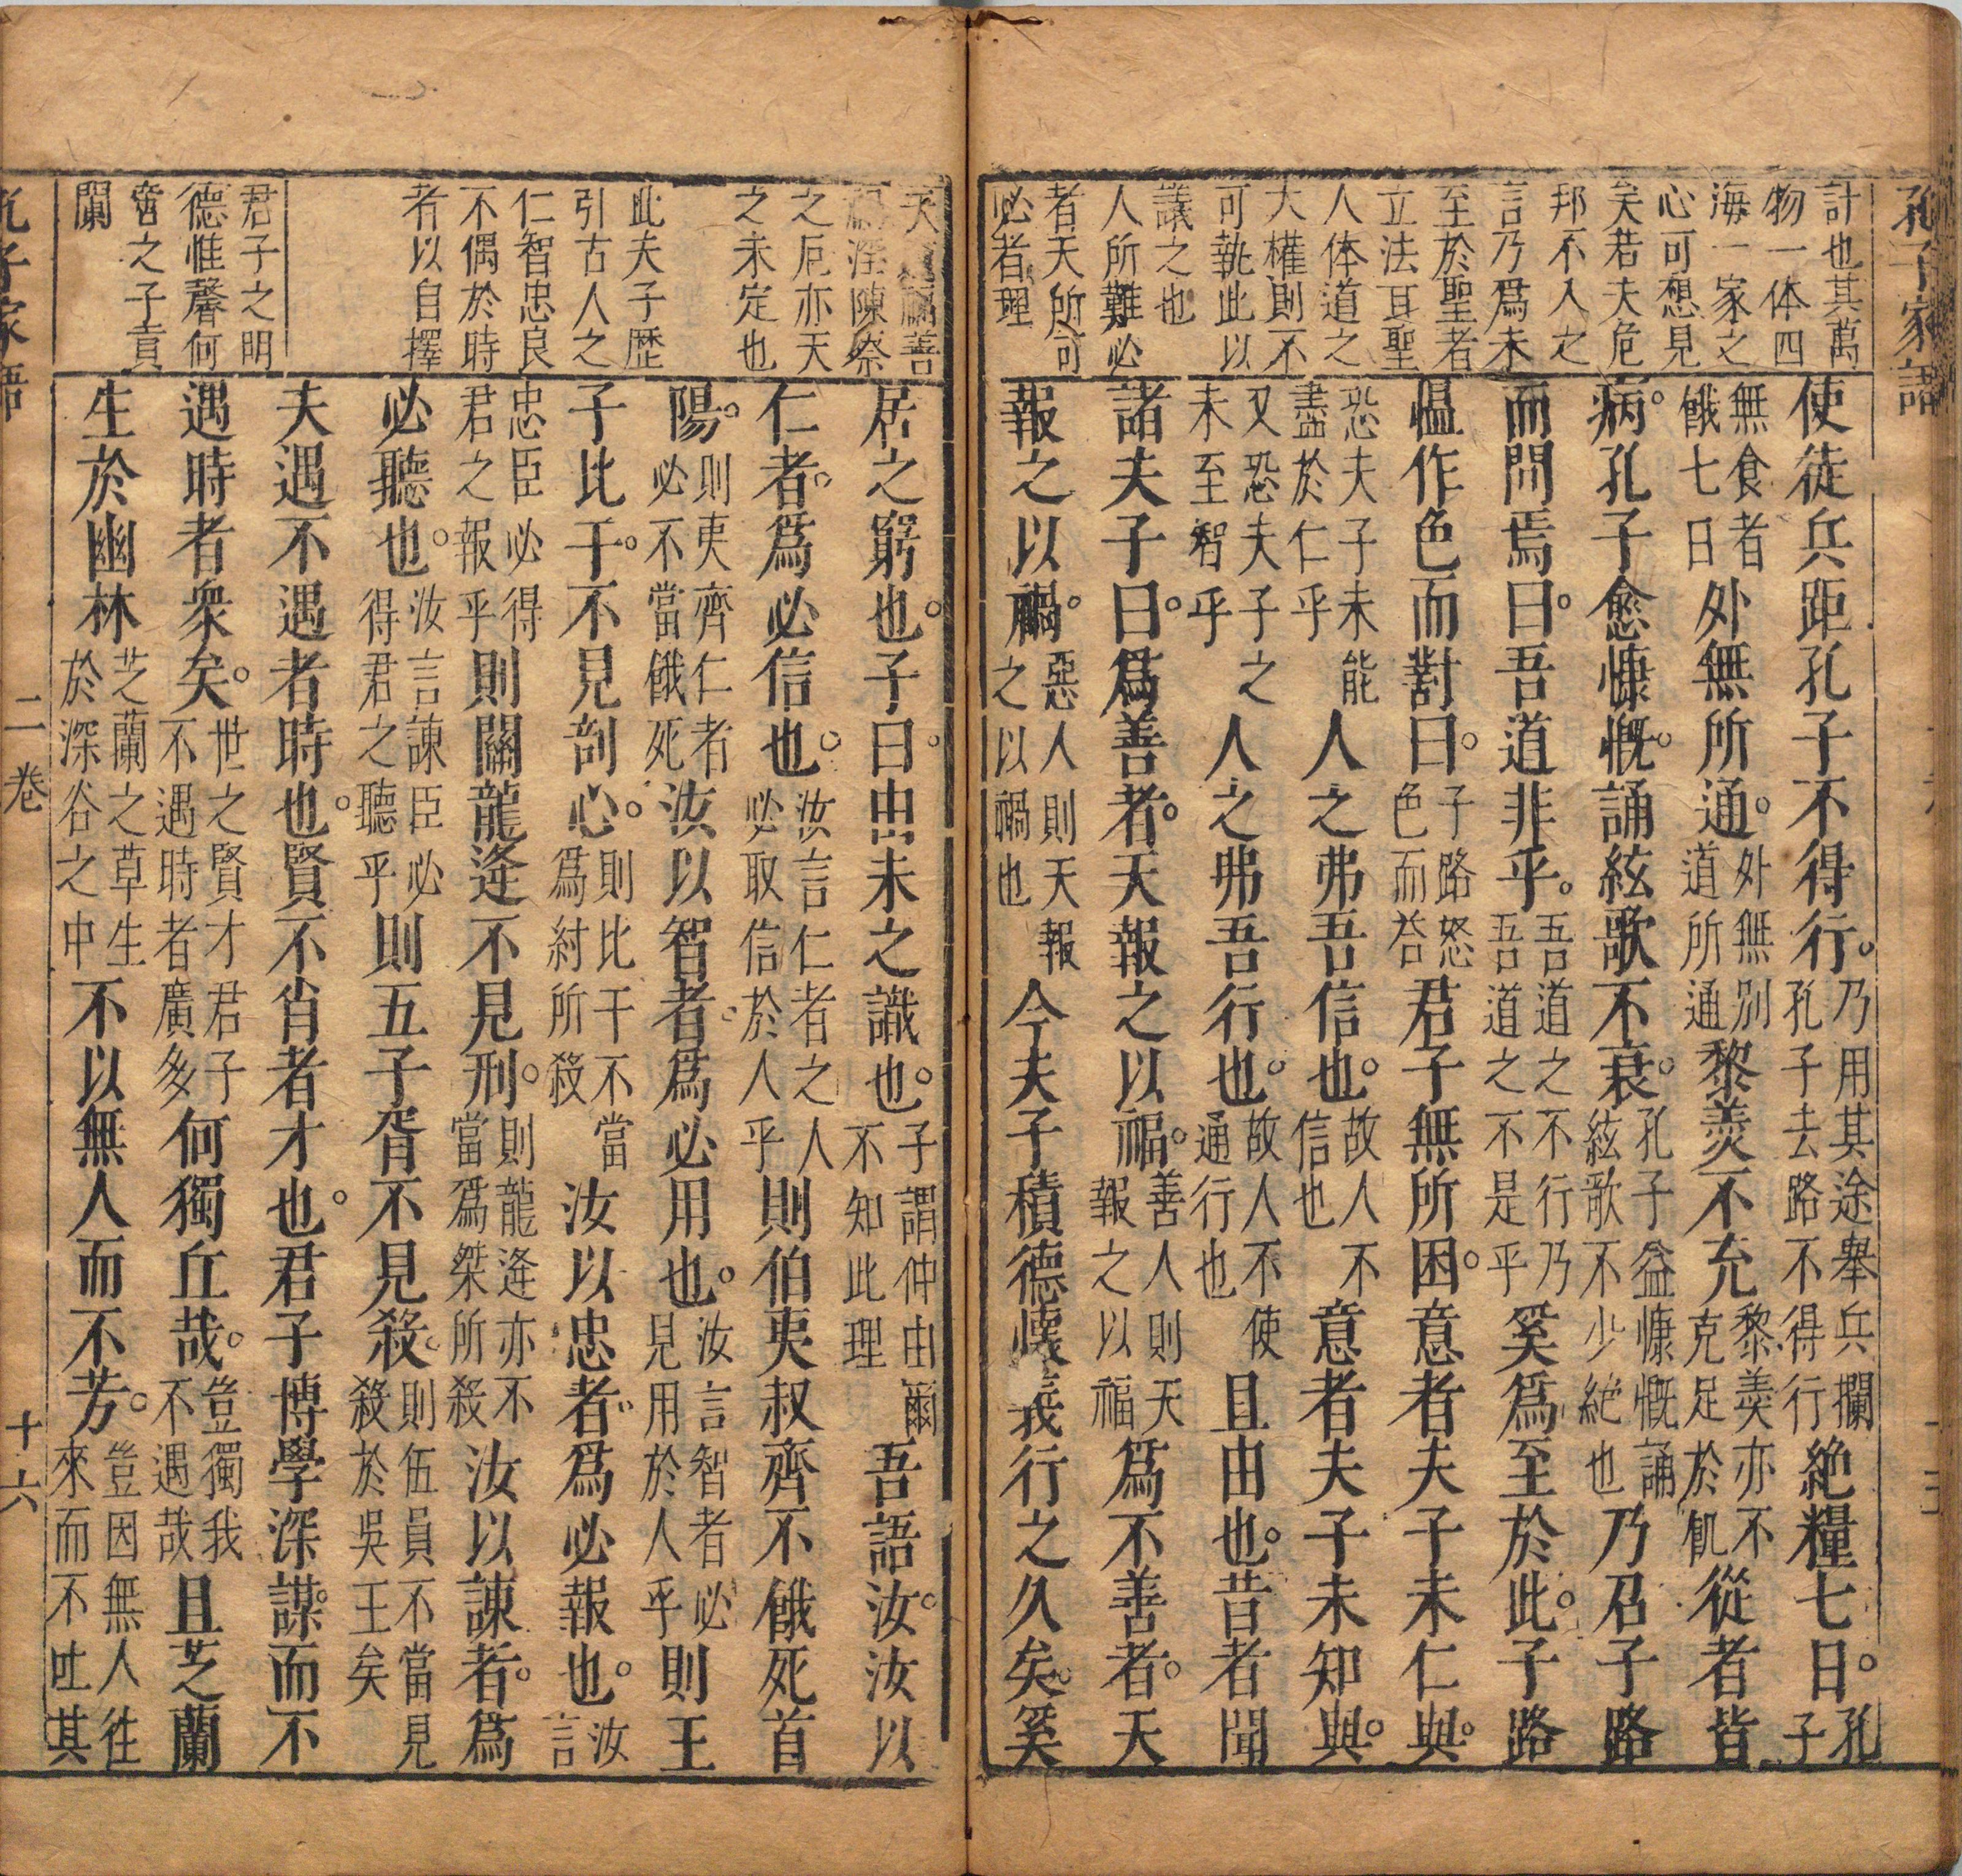 孔子家語
計也其萬
物一体四
海一家之
心可想見
矣若夫危
邦不入之
言乃爲未
至於聖者
立法耳聖
人体道之
大權則不
可執此以
議之也
人所難必
者天所可
必者理
使徒兵距孔子不得行。乃用其途舉兵攔孔子去路不得行絶糧七日。孔子
無食者餓七日外無所通。外無別道所通黎羹不充黎羹亦不克足於飢從者皆
病。孔子愈慷慨。誦絃歌不衰。孔子益慷慨誦絃歌不少絶也乃召子路
而問焉曰。吾道非乎。吾道之不行乃吾道之不是乎奚爲至於此。子路
慍作色而對曰。子路怒色而荅君子無所困。意者夫子未仁與。
恐夫子未能盡於仁乎人之弗吾信也。故人不信也意者夫子未知與。
又恐夫子之未至智乎人之弗吾行也。故人不使通行也且由也。昔者聞
諸夫子曰。爲善者。天報之以福。善人則天報之以福爲不善者。天
報之以禍。惡人則天報之以禍也今夫子積德懷義行之久矣。奚
禍善
禍淫陳蔡
之厄亦天
之未定也
此夫子歴
引古人之
仁智忠良
不偶於時
者以自擇
君子之明
德惟馨何
啻之子貢
蘭
居之窮也。子曰。由未之識也。子謂仲由爾不知此理吾語汝。汝以
仁者。爲必信也。汝言仁者之人必取信於人乎則伯夷叔齊不餓死首
陽。則夷齊仁者必不當餓死汝以智者。爲必用也。汝言智者必見用於人乎則王
子比干。不見剖心。則比干不當爲紂所殺汝以忠者。爲必報也。汝言
忠臣必得君之報乎則關龍逄不見刑。則龍逄亦不當爲桀所殺汝以諫者。爲
必聽也。汝言諫臣必得君之聽乎則五子胥不見殺。則伍員不當見殺於吳王矣
夫遇不遇者時也。賢不肖者才也。君子博學深謀。而不
遇時者衆矣。世之賢才君子不遇時者廣多何獨丘哉。豈獨我不遇哉且芝蘭
生於幽林芝蘭之草生於深谷之中不以無人而不芳。豈因無人往來而不吐其
孔子家語
二卷
十六